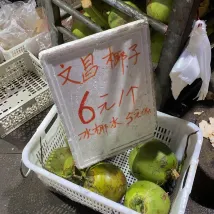 文昌椰子
6元/个
冰椰水 8元/个